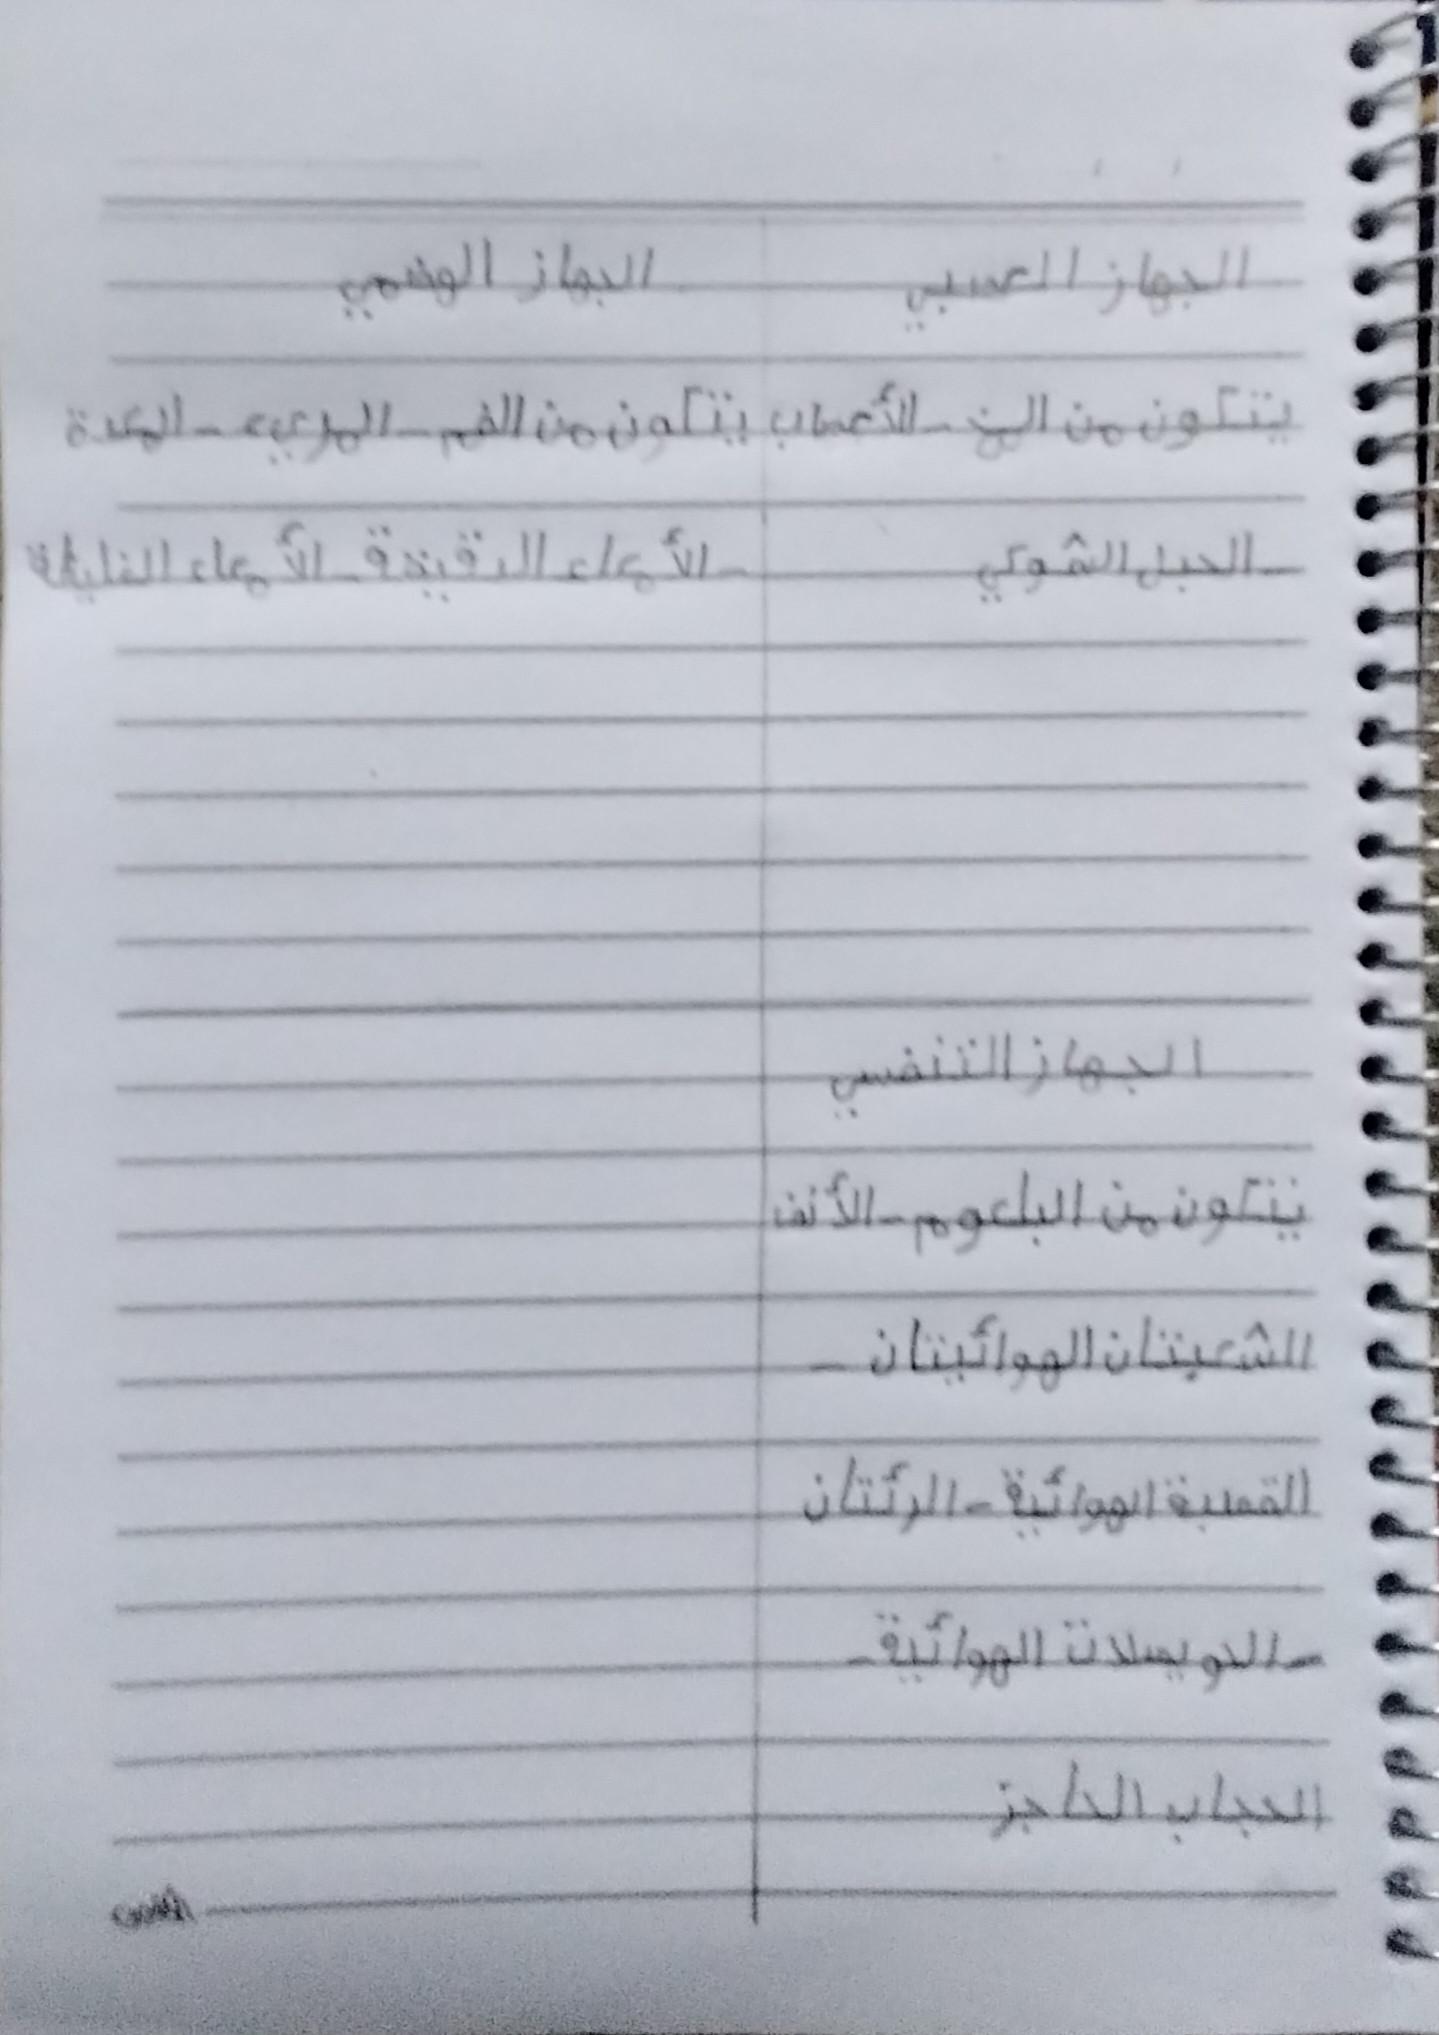 الجهاز العصبي
يتكون من المخ - الأعصاب
- الحبل الشوكي
الجهاز الهضمي
يتكون من الفم - المريء - المعدة
- الأمعاء الدقيقة - الأمعاء الغليظة
الجهاز التنفسي
يتكون من البلعوم - الأنف
الشعبتان الهوائيتان -
القصبة الهوائية - الرئتان
- الحويصلات الهوائية -
الحجاب الحاجز